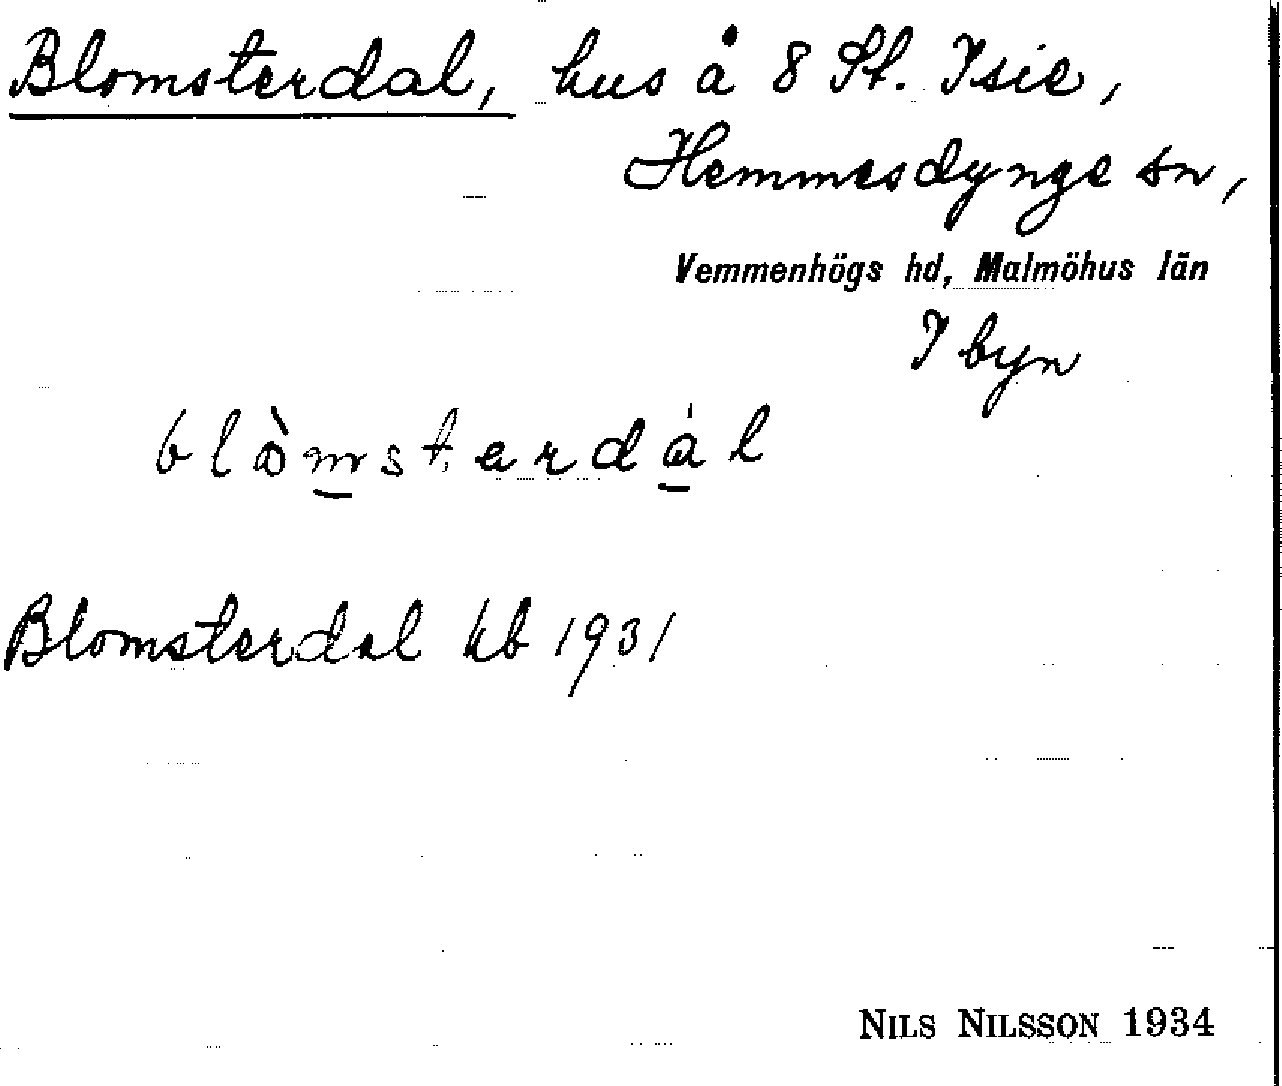 Blomsterdal, hus å 8 St. Isie,
Hemmesdynge sn,
Vemmenhögs hd, Malmöhus län
I byn
blòmstardál
Blomsterdal kb 1931
NILS NILSSON 1934